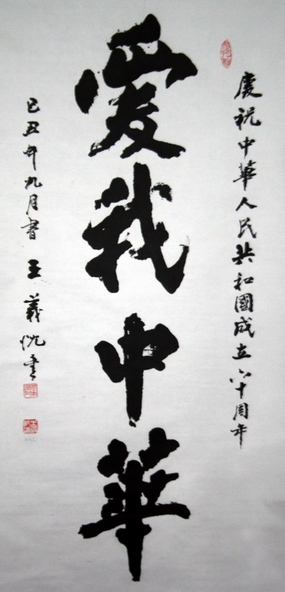 慶祝中華人民共和國成立六十周年
愛我中華
己丑年九月書 王義